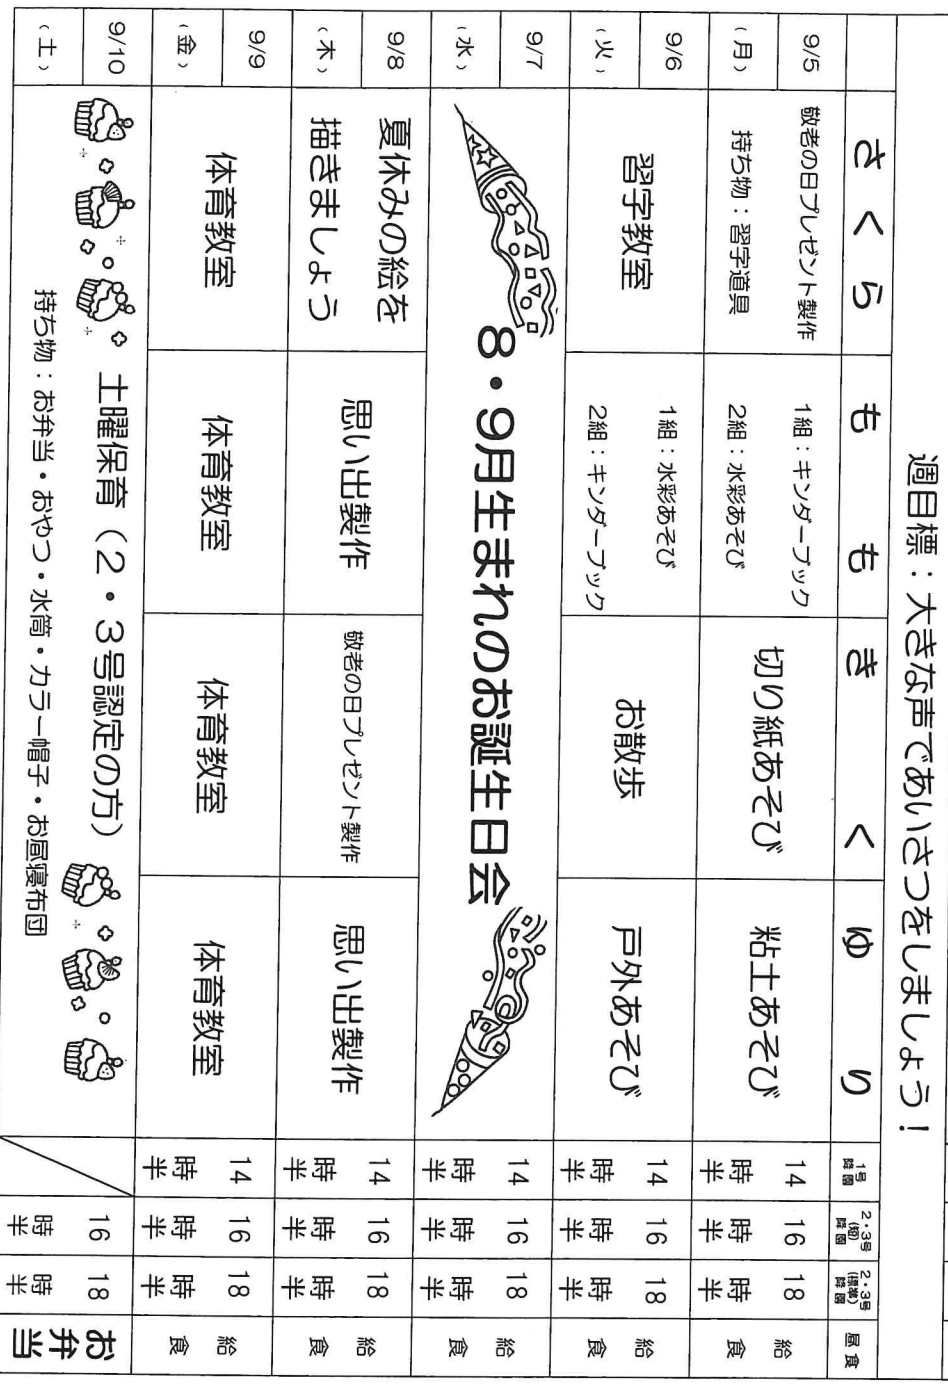 週目標：大きな声であいさつをしましょう！
さくら
もも
きく
ゆり
1号
降園
2・3号
(短)
降園
2・3号
(標準)
降園
昼食
9/5
（月）
敬老の日プレゼント製作
持ち物：習字道具
1組：キンダーブック
2組：水彩あそび
切り紙あそび
粘土あそび
14
時半
16
時半
18
時半
給
食
9/6
（火）
習字教室
1組：水彩あそび
2組：キンダーブック
お散歩
戸外あそび
14
時半
16
時半
18
時半
給
食
9/7
（水）
8・9月生まれのお誕生日会
14
時半
16
時半
18
時半
給
食
9/8
（木）
夏休みの絵を
描きましょう
思い出製作
敬老の日プレゼント製作
思い出製作
14
時半
16
時半
18
時半
給
食
9/9
（金）
体育教室
体育教室
体育教室
体育教室
14
時半
16
時半
18
時半
給
食
9/10
（土）
土曜保育（2・3号認定の方）
持ち物：お弁当・おやつ・水筒・カラー帽子・お昼寝布団
16
時半
18
時半
お弁当